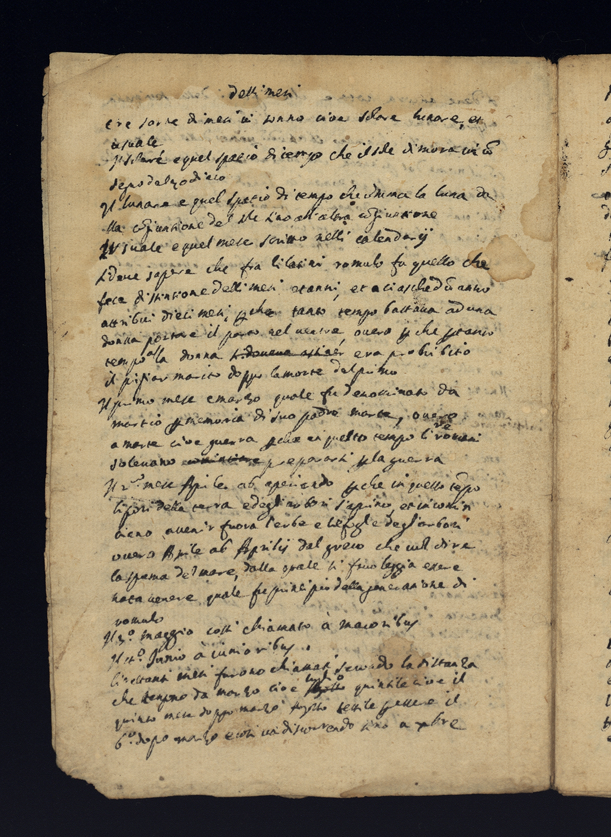 delli mesi
tre sorte di mesi vi sonno cioe solare lunare, et
usuale
Il solare e quel spatio di tempo che il sole dimora in un
segno del zodiaco
Il lunare e quel spatio di tempo che la luna da
lla congiuntione del sole sino all'altra congiuntione
L'usuale e quel mese scritto nelli calendarij
si deve sapere che fra li latini romulo fu quello che
fece distintione delli mesi et anni, et a ciaschedun anno
attribui dieci mesi, perche tanto tempo bastava ad una
donna portare il parto nel ventre, overo perche per tanto
tempo alla donna era prohibito
il pigliar marito doppo la morte del primo
Il primo mese e marzo quale fu denominato da
martio per memoria di suo padre marte, overo
a marte cioe guerra perche in questo tempo li romani
solevano prepararsi per la guerra
Il 2º mese Aprile ab aperiendo perche in questo tempo
li fiori della terra e degl'arbori s'aprino et incomin
ciano a venir fuora l'erbe e le foglie degl'arbori
overo Aprile ab Aprilis dal greco che vol dire
la spuma del mare, dalla quale si favoleggia essere
nata venere quale fu principio della generatione di
romulo
Il 3º maggio cosi chiamato à maioribus
Il 4º Junio à iunioribus
li restanti mesi furono chiamati secondo la distanza
che tengono da marzo cioe luglio quintile cioe il
quinto mese doppo marzo Agosto sestile per essere il
6º dopo marzo e cosi va discorrendo sino a xbre